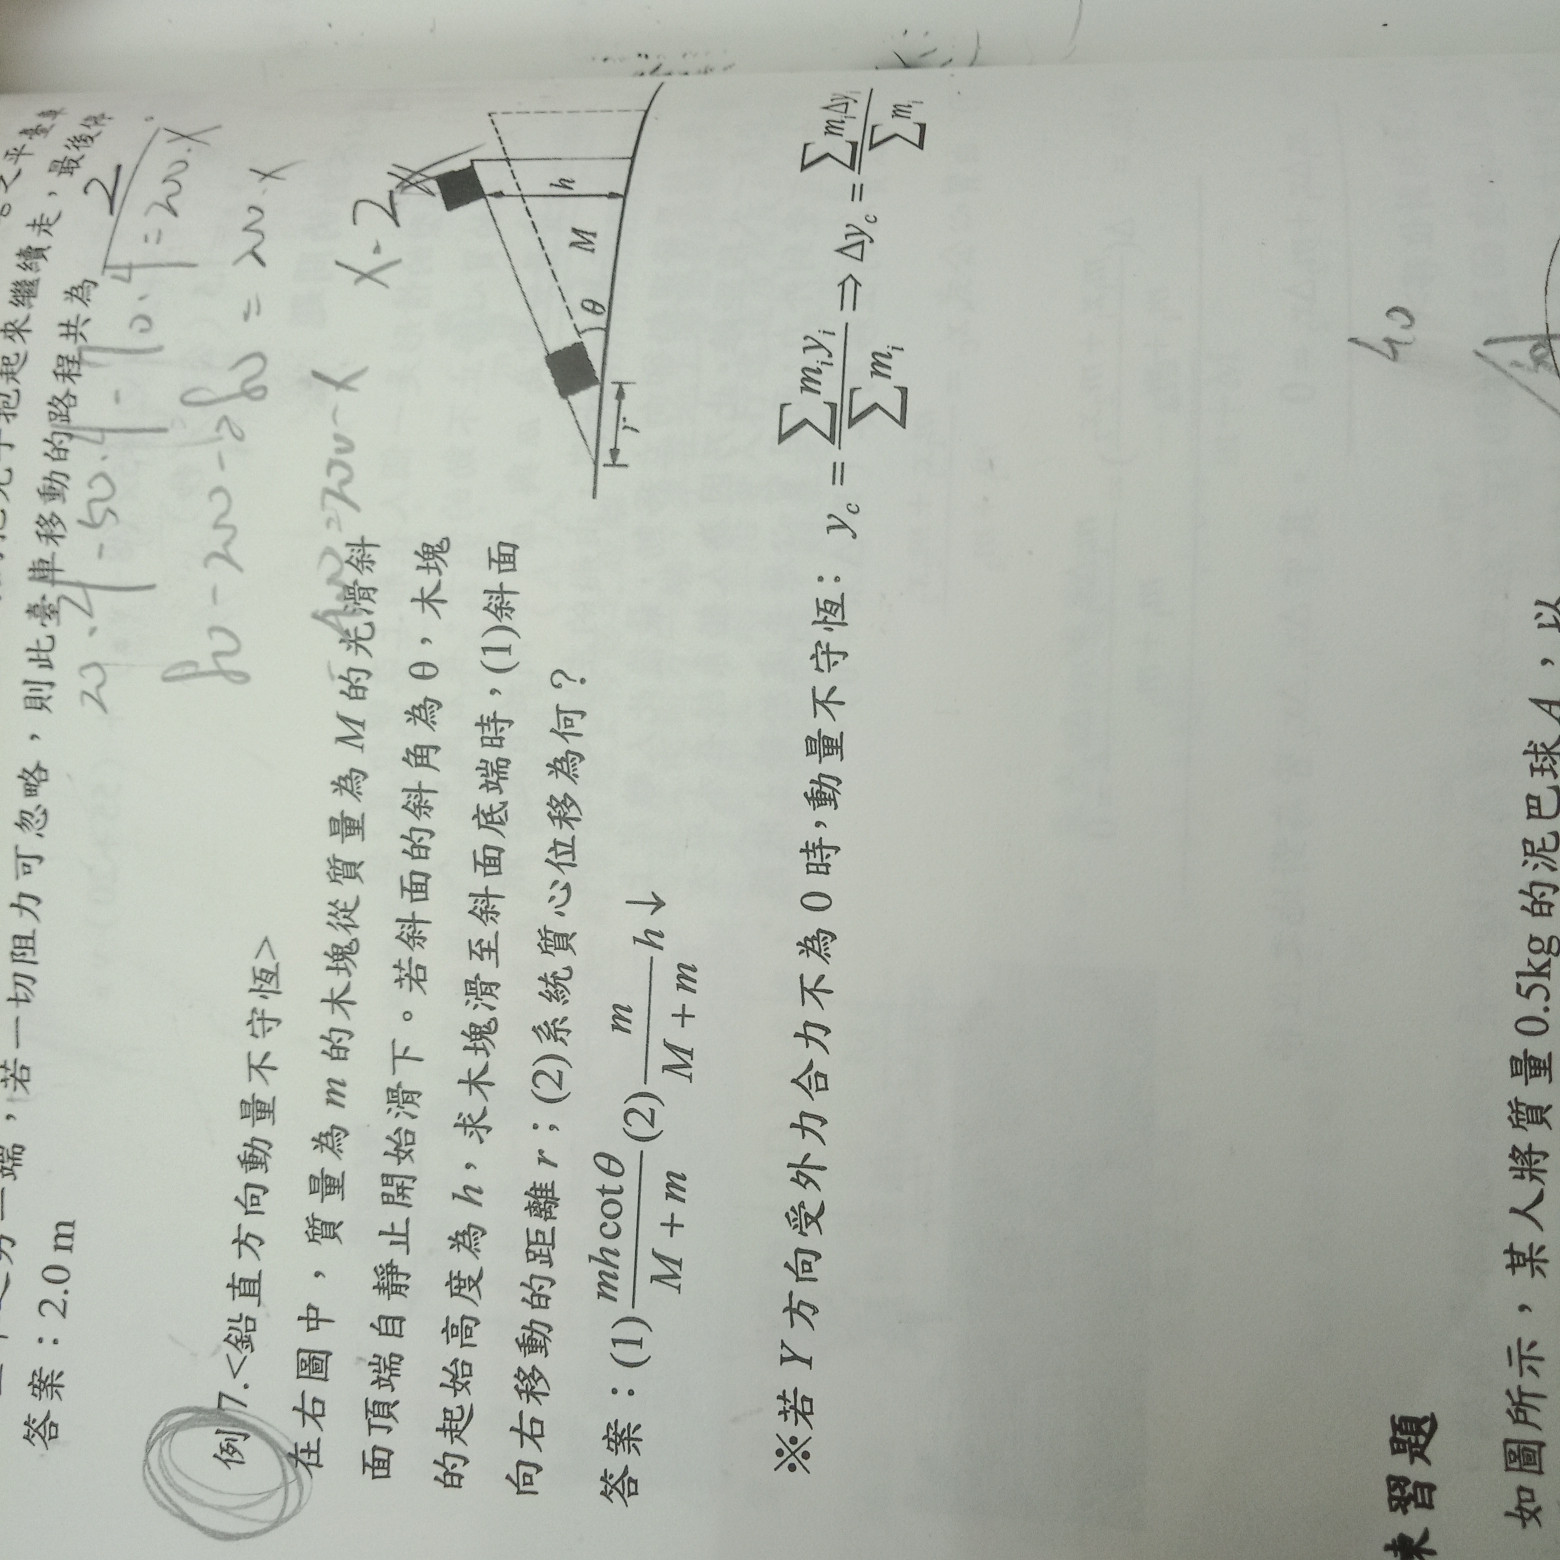 若一切阻力可忽略，則此臺車移動的路程共為
答案：2.0 m
例7.<鉛直方向動量不守恆>
在右圖中，質量為 m 的木塊從質量為 M 的光滑斜
面頂端自靜止開始滑下。若斜面的斜角為 θ，木塊
的起始高度為 h，求木塊滑至斜面底端時，(1)斜面
向右移動的距離 r；(2)系統質心位移為何？
答案：(1) \frac{mh\cot\theta}{M+m} (2) \frac{m}{M+m} h↓
h
M
θ
r
※若 Y 方向受外力合力不為 0 時，動量不守恆： y_c = \frac{\sum m_i y_i}{\sum m_i} ⇒ Δy_c = \frac{\sum m_i Δy_i}{\sum m_i}
40
練習題
如圖所示，某人將質量 0.5kg 的泥巴球 A，以